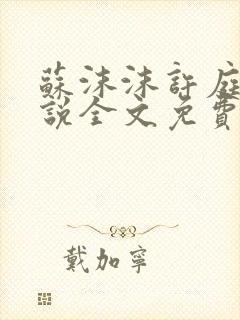 蘇沫沫許庭
說全文免費
戴加寧